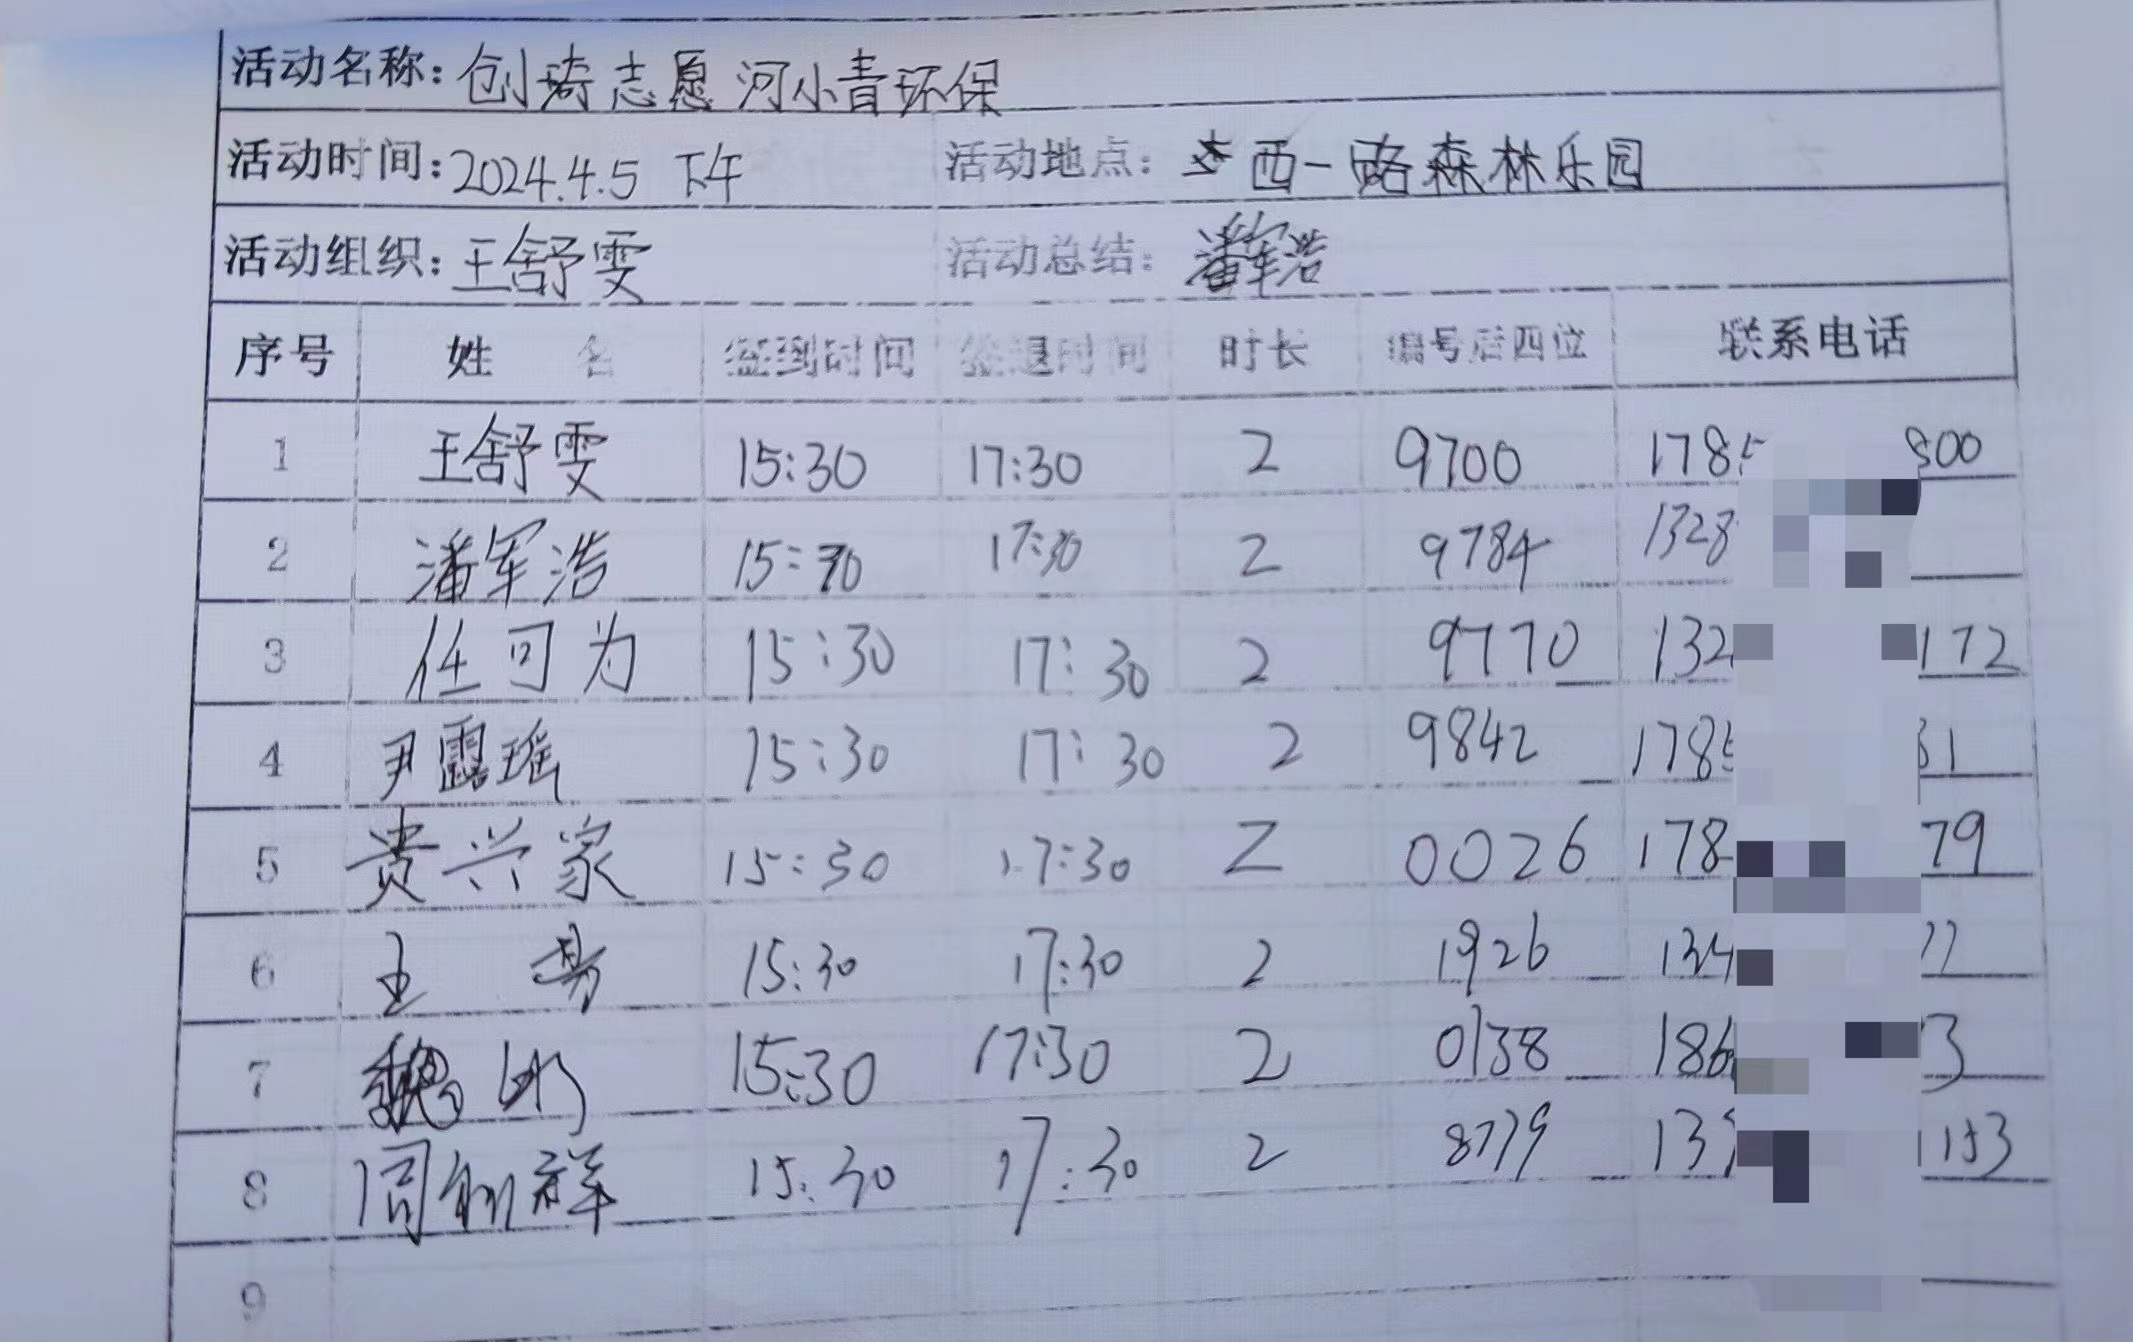 活动名称：创琦志愿河小青环保
活动时间：2024.4.5 下午 活动地点： 西一路森林乐园
活动组织：王舒雯 活动总结：潘军浩
序号 姓名 签到时间 签退时间 时长 编号后四位 联系电话
1 王舒雯 15:30 17:30 2 9700 1785 800
2 潘军浩 15:30 17:30 2 9784 1328
3 任可为 15:30 17:30 2 9770 132 172
4 尹露瑶 15:30 17:30 2 9842 1785 31
5 贵兴家 15:30 17:30 2 0026 178 79
6 王 15:30 17:30 2 1926 134 77
7 魏 15:30 17:30 2 0138 186 3
8 周 祥 15:30 17:30 2 8779 13 1153
9